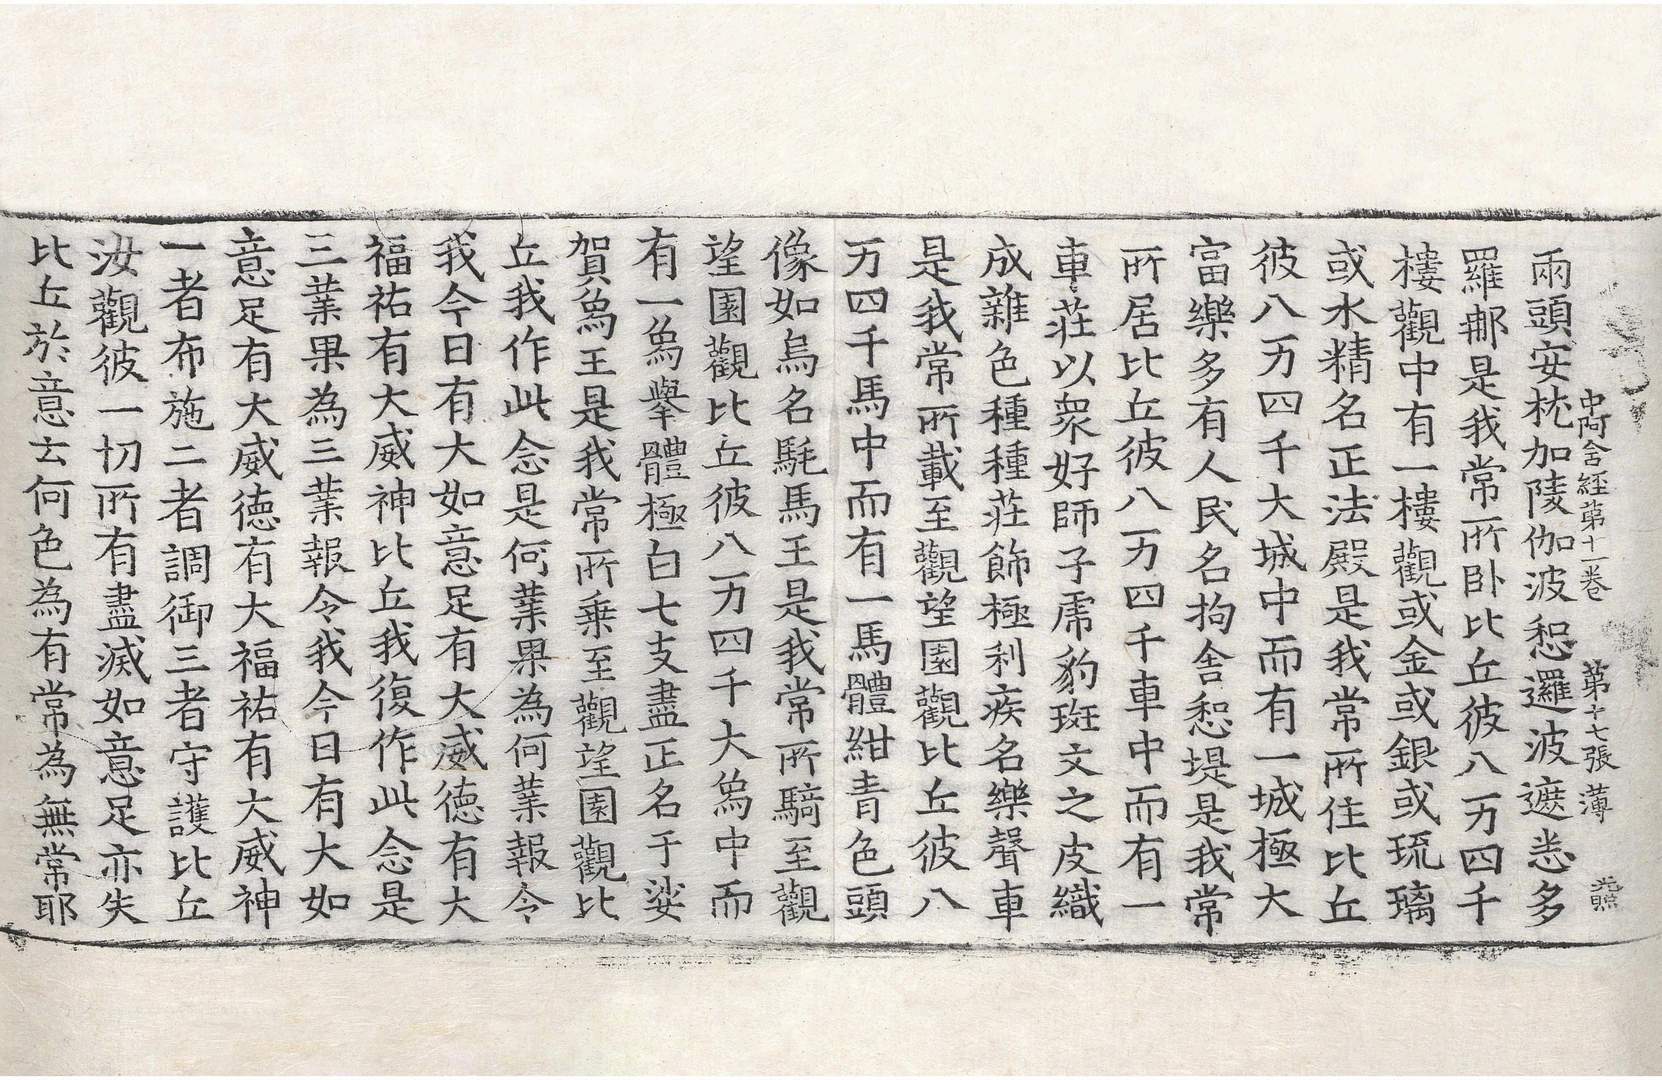 中阿含經第十一卷　第十七張　薄　光照
兩頭安枕加陵伽波惒邏波遮悉多
羅那是我常所臥比丘彼八万四千
樓觀中有一樓觀或金或銀或琉璃
或水精名正法殿是我常所住比丘
彼八万四千大城中而有一城極大
富樂多有人民名拘舍惒堤是我常
所居比丘彼八万四千車中而有一
車莊以衆好師子虎豹斑文之皮織
成雜色種種莊飾極利疾名樂聲車
是我常所載至觀望園觀比丘彼八
万四千馬中而有一馬體紺青色頭
像如烏名髦馬王是我常所騎至觀
望園觀比丘彼八万四千大象中而
有一象擧體極白七支盡正名于娑
賀象王是我常所乗至觀望園觀比
丘我作此念是何業果為何業報令
我今日有大如意足有大威德有大
福祐有大威神比丘我復作此念是
三業果為三業報令我今日有大如
意足有大威德有大福祐有大威神
一者布施二者調御三者守護比丘
汝觀彼一切所有盡滅如意足亦失
比丘於意云何色為有常為無常耶